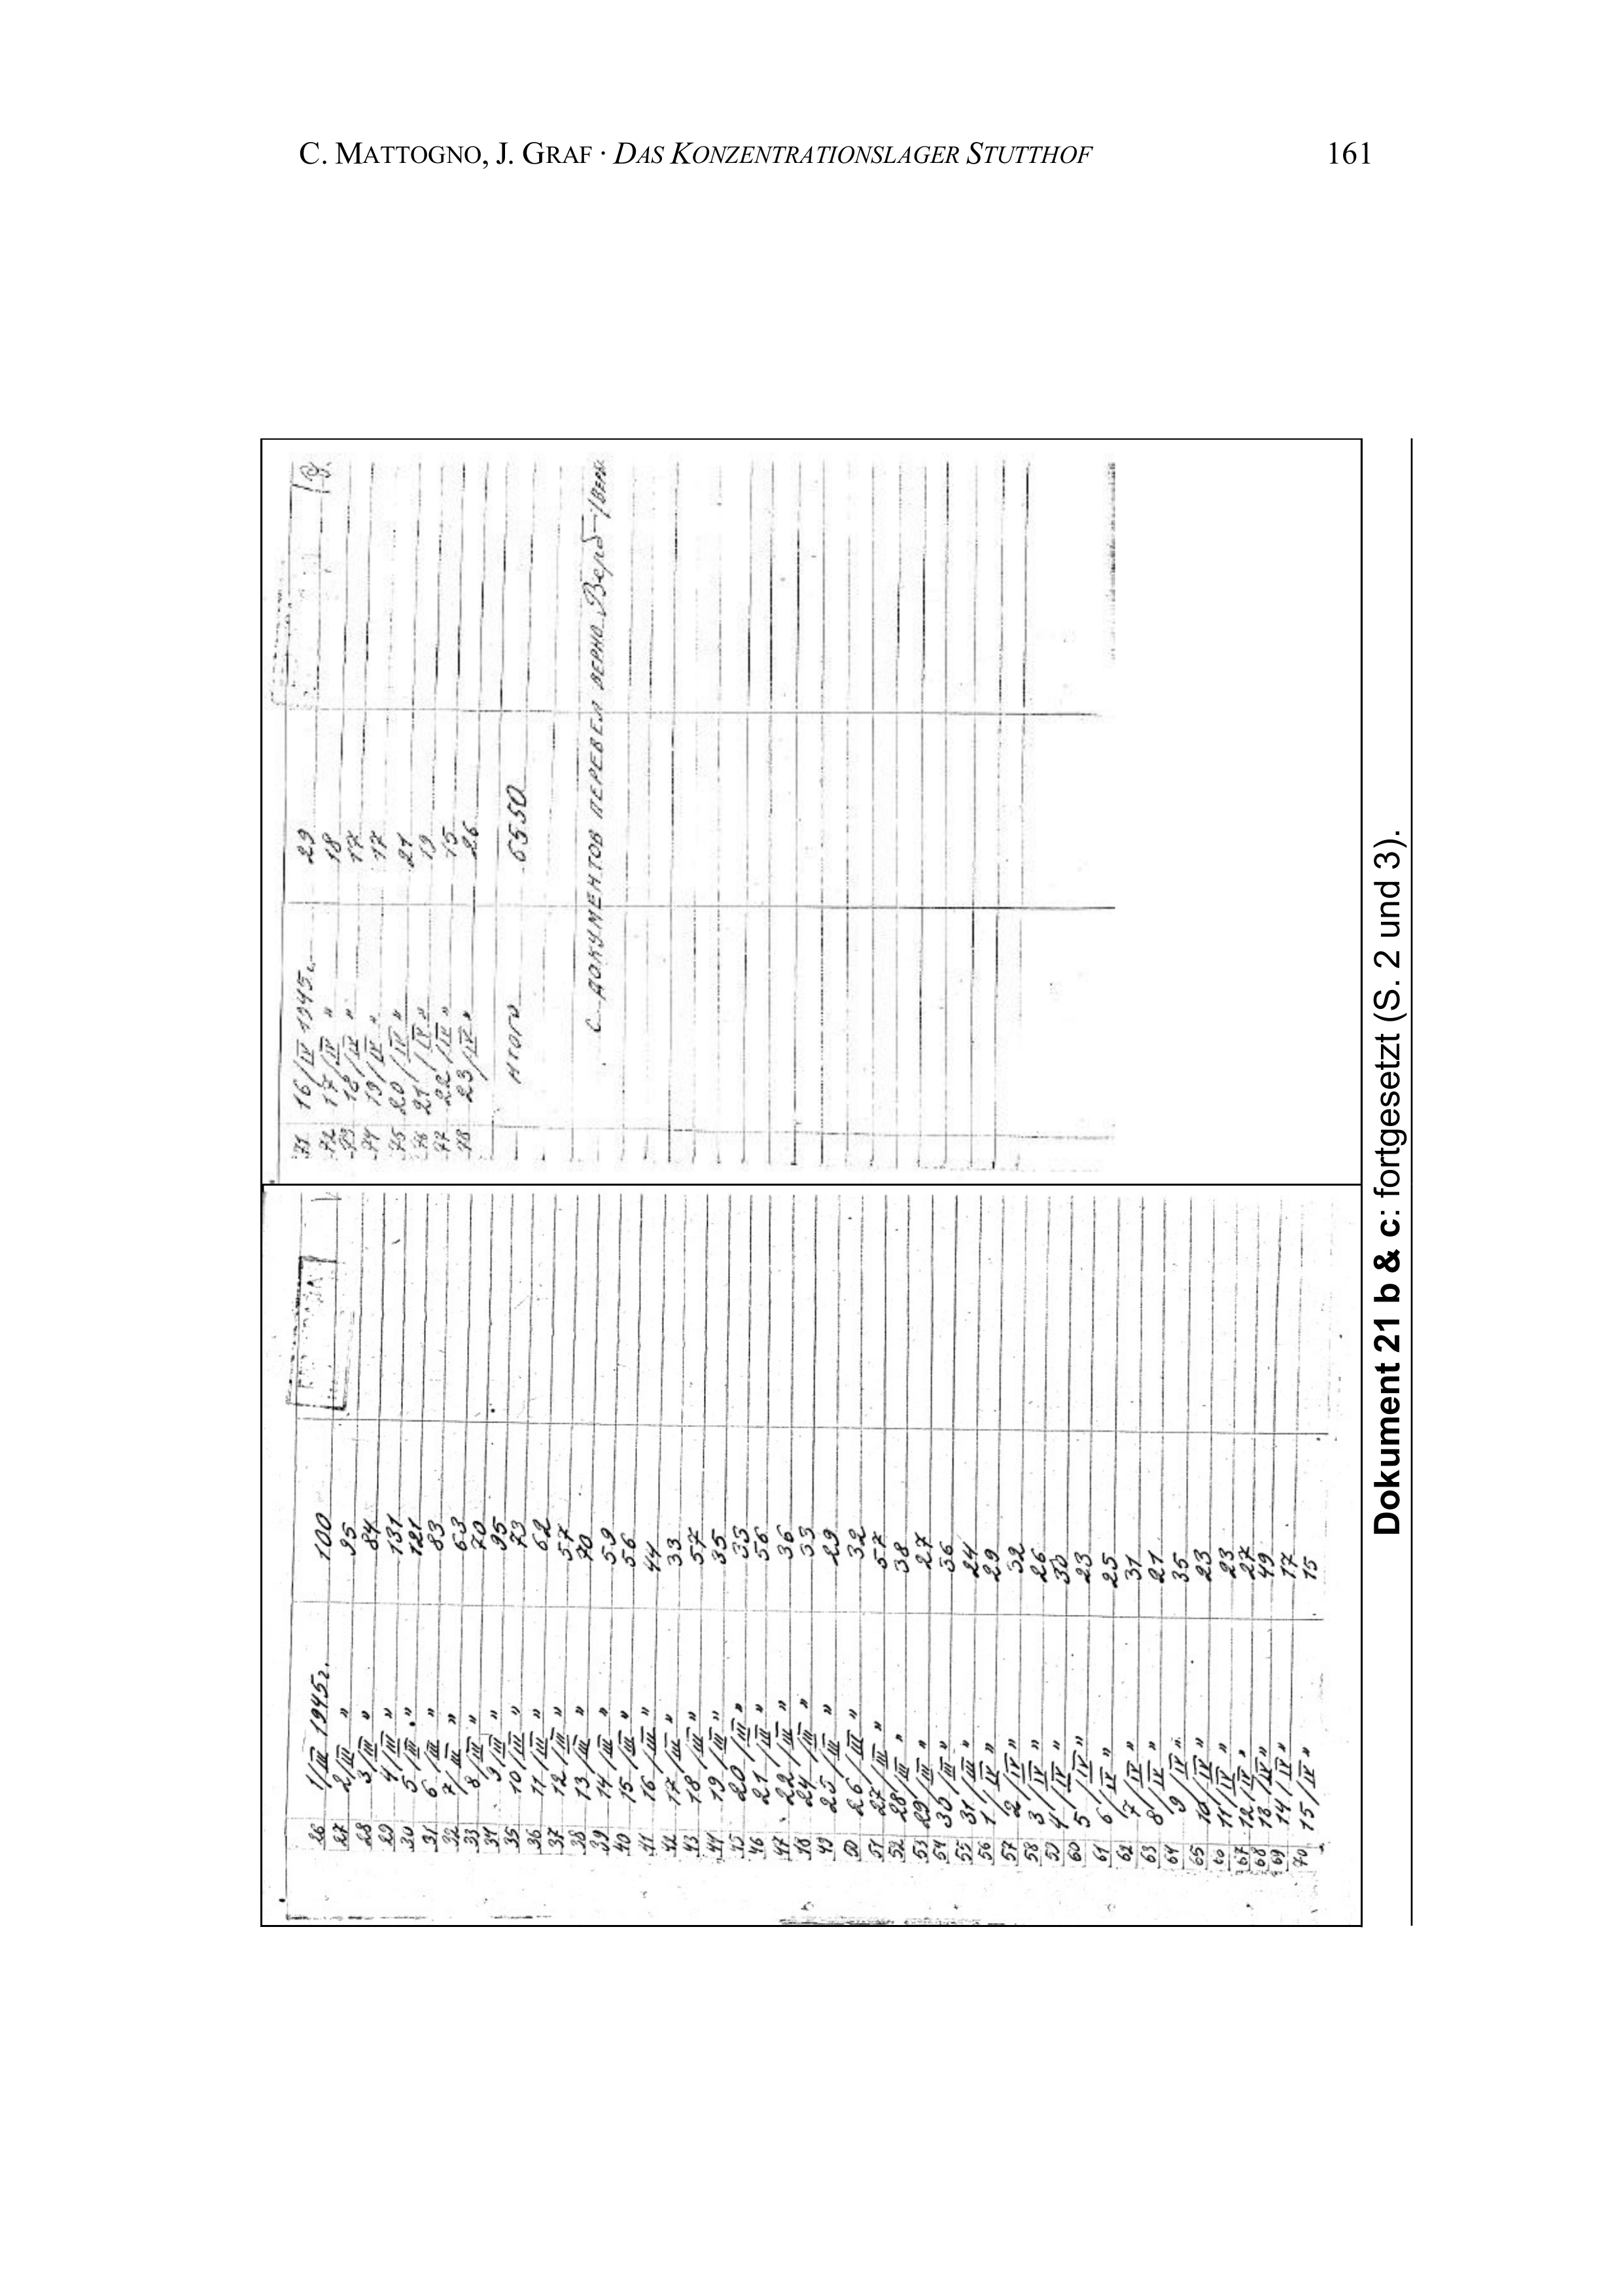 C. MATTOGNO, J. GRAF · DAS KONZENTRATIONSLAGER STUTTHOF 161
26 1/III 1945г. 100
27 2/III " 95
28 3/III " 84
29 4/III " 131
30 5/III " 121
31 6/III " 83
32 7/III " 63
33 8/III " 70
34 9/III " 95
35 10/III " 73
36 11/III " 62
37 12/III " 57
38 13/III " 70
39 14/III " 59
40 15/III " 56
41 16/III " 44
42 17/III " 33
43 18/III " 57
44 19/III " 35
45 20/III " 35
46 21/III " 56
47 22/III " 36
48 24/III " 33
49 25/III " 29
50 26/III " 32
51 27/III " 57
52 28/III " 38
53 29/III " 27
54 30/III " 36
55 31/III " 24
56 1/IV " 29
57 2/IV " 32
58 3/IV " 26
59 4/IV " 30
60 5/IV " 23
61 6/IV " 25
62 7/IV " 31
63 8/IV " 21
64 9/IV " 35
65 10/IV " 23
66 11/IV " 23
67 12/IV " 27
68 13/IV " 49
69 14/IV " 17
70 15/IV " 15
71 16/IV 1945г. 29
72 17/IV " 18
73 18/IV " 17
74 19/IV " 17
75 20/IV " 21
76 21/IV " 19
77 22/IV " 15
78 23/IV " 26
Итого 6550
С ДОКУМЕНТОВ ПЕРЕВЕЛ ВЕРНО
Dokument 21 b & c: fortgesetzt (S. 2 und 3).